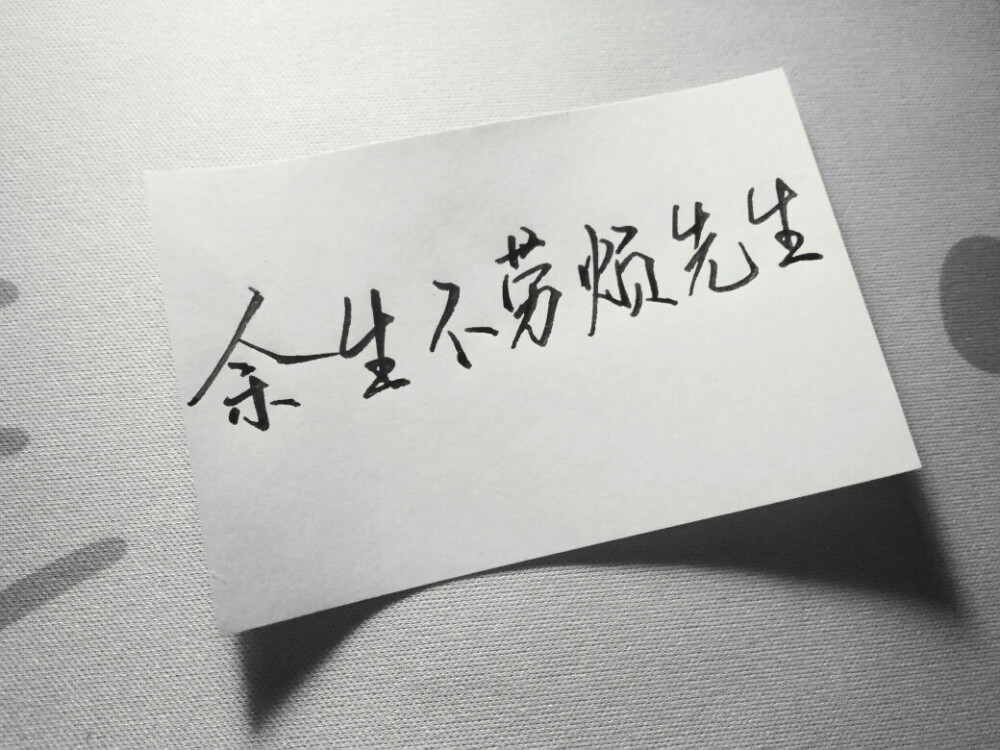 余生不劳烦先生